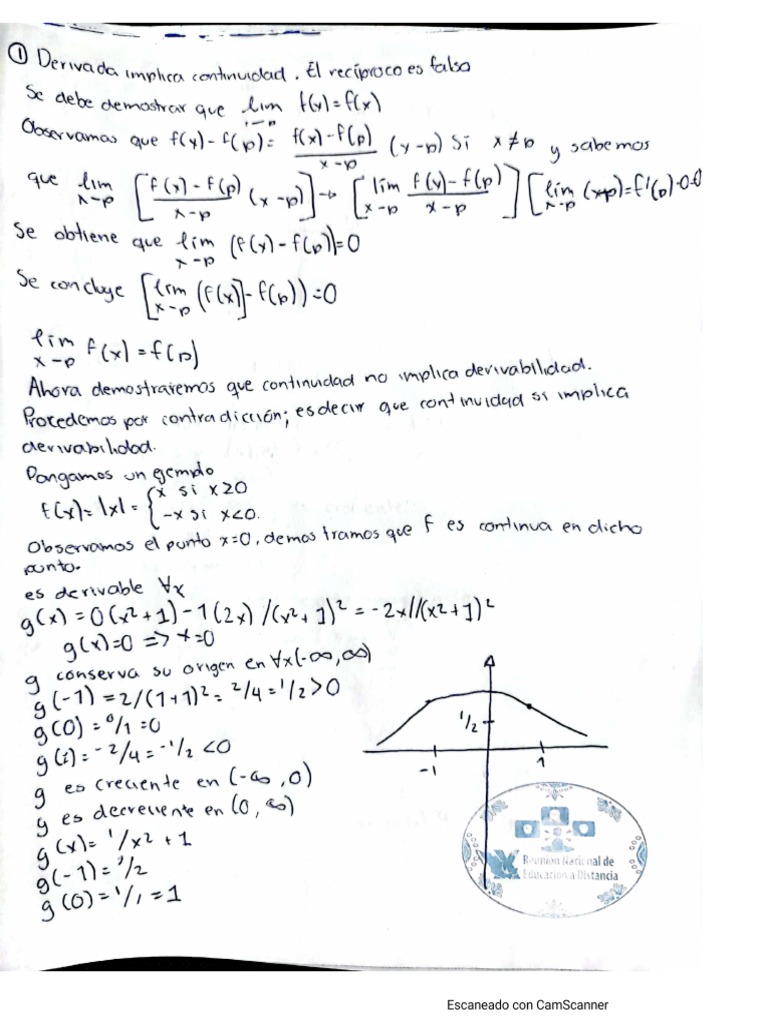 ① Derivada implica continuidad. El recíproco es falso
Se debe demostrar que lim f(x)=f(x)
x→p
Observamos que f(x)-f(p)= f(x)-f(p)/x-p (x-p) si x≠p y sabemos
que lim x→p [f(x)-f(p)/x-p (x-p)]→[lim x→p f(x)-f(p)/x-p][lim x→p (x-p)=f'(p)·0=0
Se obtiene que lim x→p (f(x)-f(p))=0
Se concluye [lim x→p (f(x)]-f(p))=0
lim x→p f(x)=f(p)
Ahora demostraremos que continuidad no implica derivabilidad.
Procedemos por contradicción; es decir que continuidad si implica
derivabilidad.
Pongamos un ejemplo
f(x)=|x|={x si x≥0
-x si x<0.
Observamos el punto x=0, demostramos que f es continua en dicho
punto.
es derivable ∀x
g(x)=0(x²+1)-1(2x)/(x²+1)²=-2x//(x²+1)²
g(x)=0 => x=0
g conserva su origen en ∀x(-∞,∞)
g(-1)=2/(1+1)²=2/4=1/2>0
g(0)=0/1=0
g(1)=-2/4=-1/2<0
g es creciente en (-∞,0)
g es decreciente en (0,∞)
g(x)=1/x²+1
g(-1)=1/2
g(0)=1/1=1
1/2
-1
1
Reunión Nacional de
Educación a Distancia
Escaneado con CamScanner